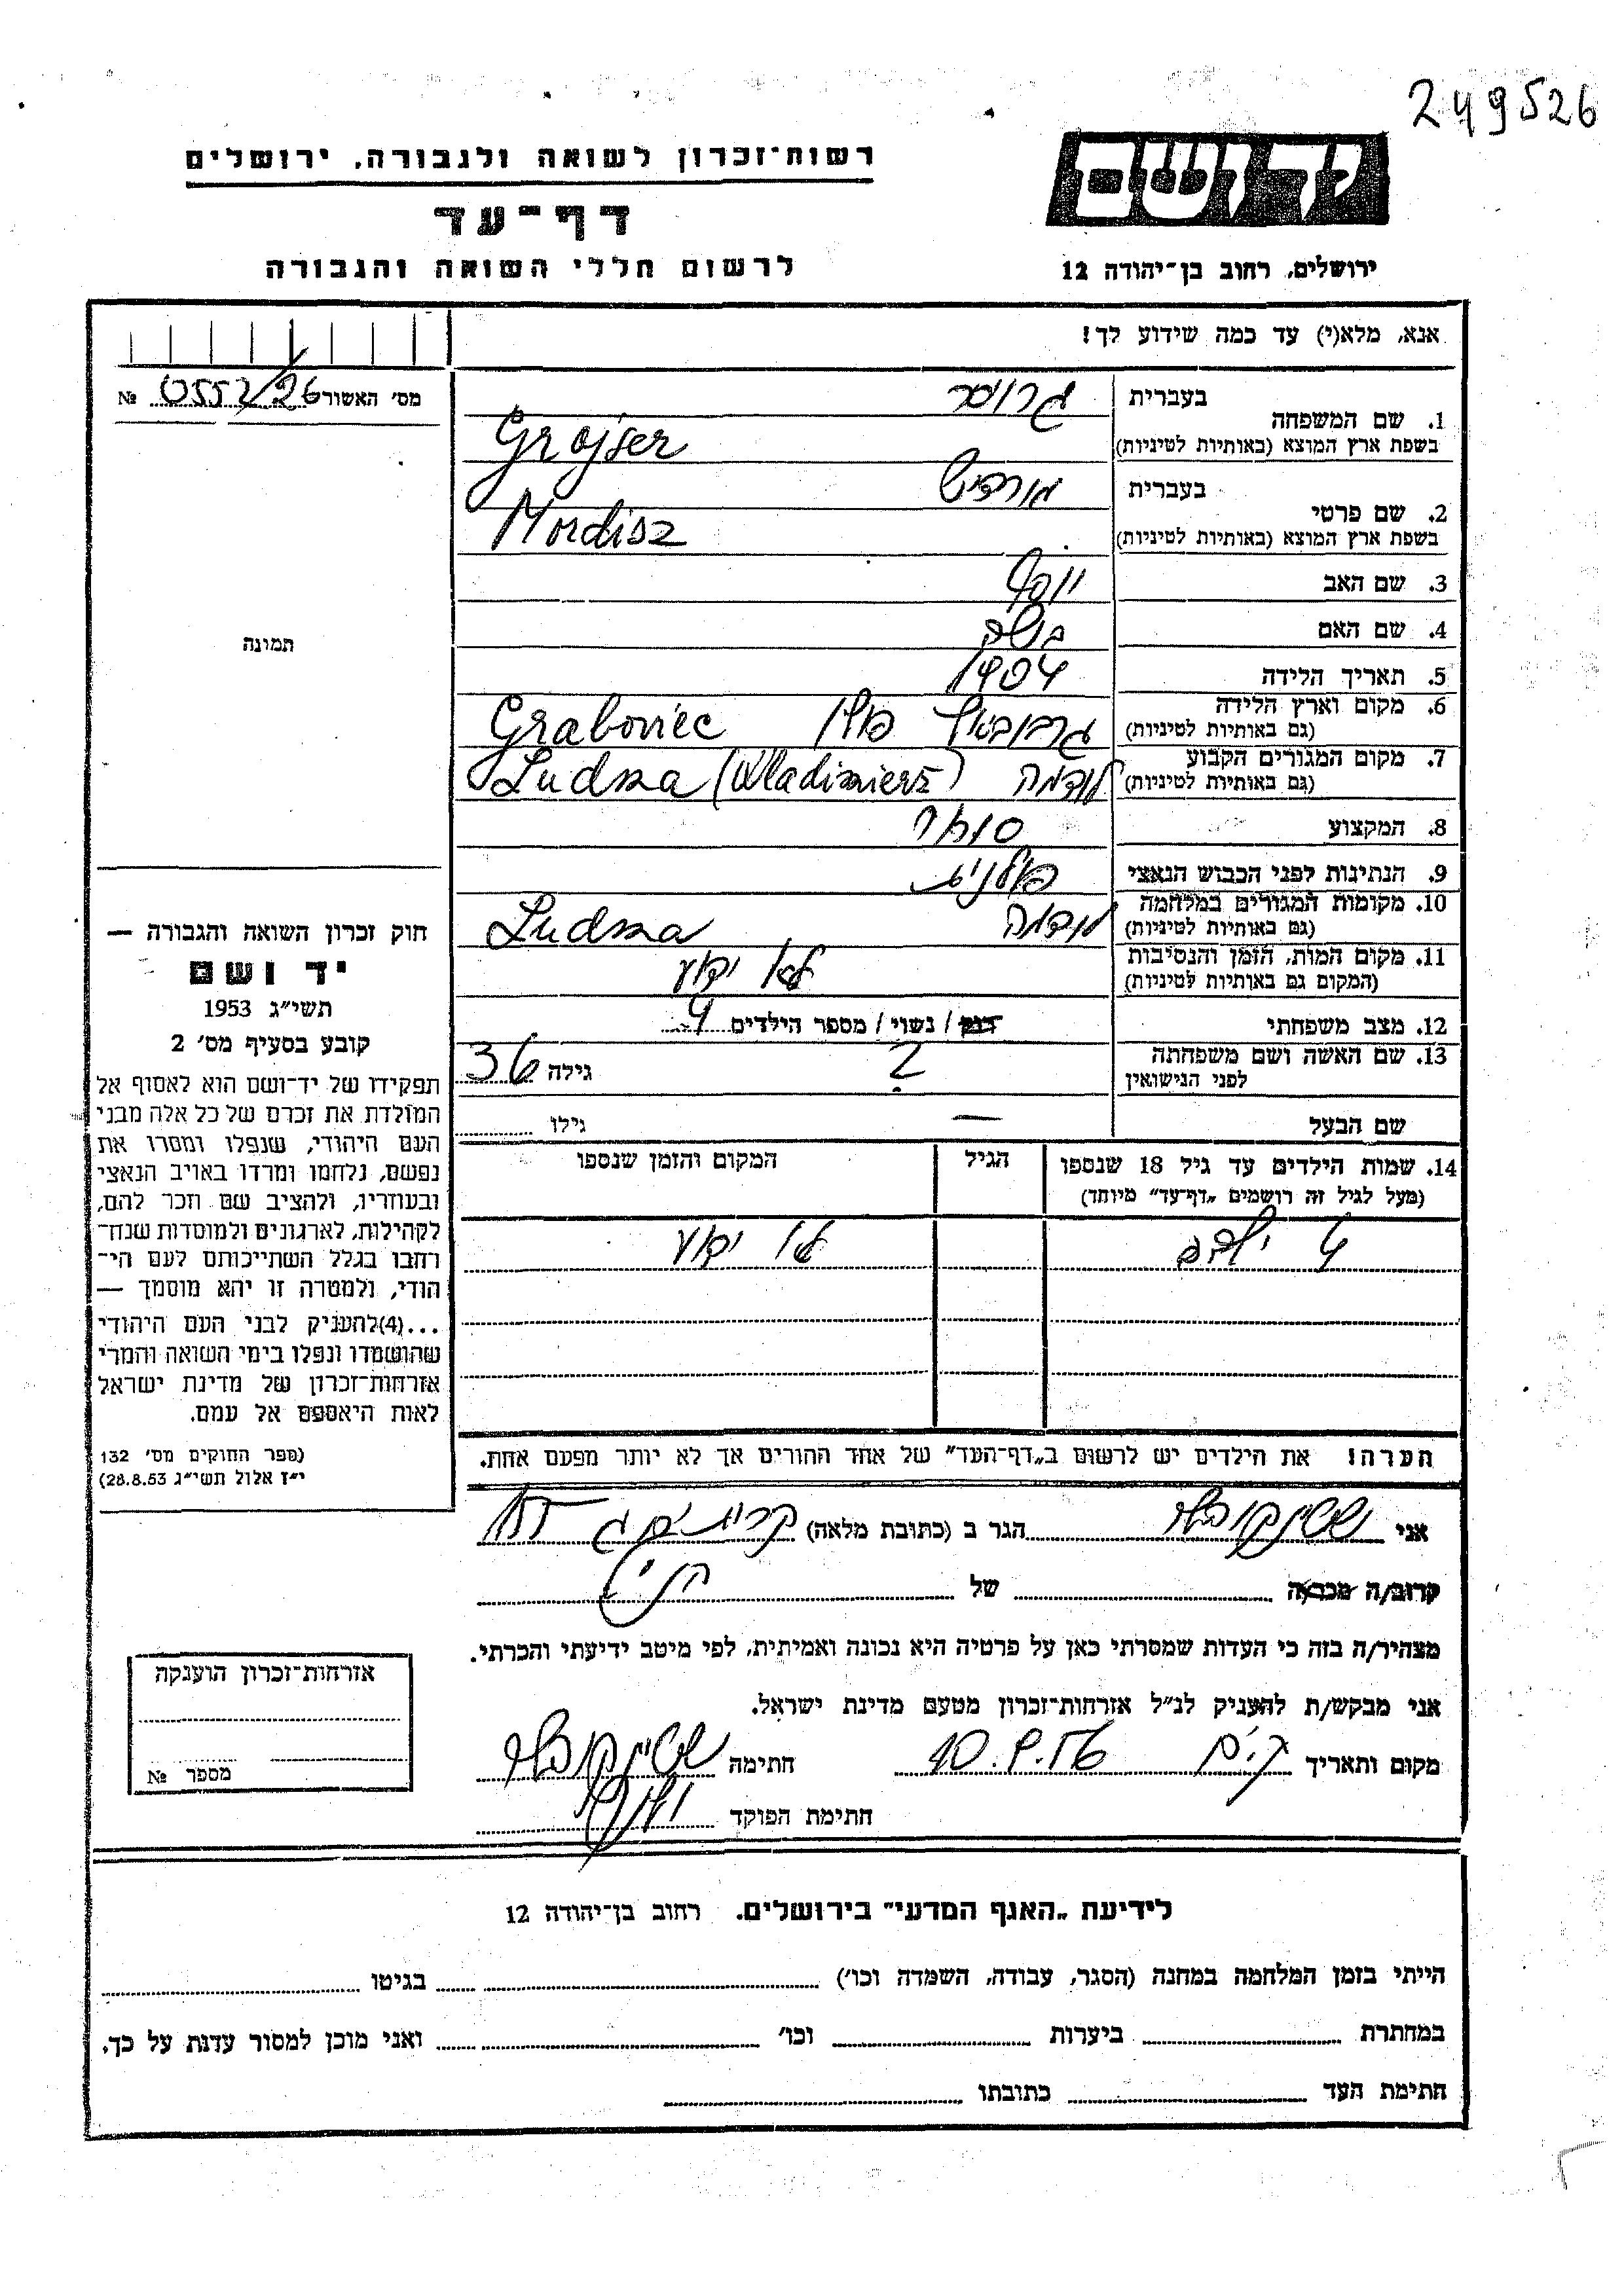 249526
יד ושם
רשות־זכרון לשואה ולגבורה, ירושלים
דף־עד
לרשום חללי השואה והגבורה
ירושלים, רחוב בן־יהודה 12
אנא, מלא(י) עד כמה שידוע לך!
מס׳ האשור 0552/26 №
תמונה
1. שם המשפחה
בעברית גרויסר
בשפת ארץ המוצא (באותיות לטיניות) Grojser
2. שם פרטי
בעברית מורדיש
בשפת ארץ המוצא (באותיות לטיניות) Mordisz
3. שם האב יוסף
4. שם האם
5. תאריך הלידה 1904
6. מקום וארץ הלידה
(גם באותיות לטיניות) פולין Graboviec
7. מקום המגורים הקבוע
(גם באותיות לטיניות) לודמה Ludma (Wladimierz)
8. המקצוע סוחר
9. הנתינות לפני הכבוש הנאצי פולנית
10. מקומות המגורים במלחמה
(גם באותיות לטיניות) לודמה Ludma
11. מקום המות, הזמן והנסיבות
(המקום גם באותיות לטיניות) לא ידוע
12. מצב משפחתי רווק / נשוי / מספר הילדים 4
13. שם האשה ושם משפחתה
לפני הנישואין ? גילה 36
שם הבעל — גילו
14. שמות הילדים עד גיל 18 שנספו הגיל המקום והזמן שנספו
(מעל לגיל זה רושמים „דף־עד” מיוחד)
4 ילדים לא ידוע
הערה! את הילדים יש לרשום ב„דף־העד” של אחד ההורים אך לא יותר מפעם אחת.
חוק זכרון השואה והגבורה —
יד ושם
תשי״ג 1953
קובע בסעיף מס׳ 2
תפקידו של יד־ושם הוא לאסוף אל
המולדת את זכרם של כל אלה מבני
העם היהודי, שנפלו ומסרו את
נפשם, נלחמו ומרדו באויב הנאצי
ובעוזריו, ולהציב שם וזכר להם,
לקהילות, לארגונים ולמוסדות שנח־
רחבו בגלל השתייכותם לעם הי־
הודי, ולמטרה זו יהא מוסמך —
...(4)להעניק לבני העם היהודי
שהושמדו ונפלו בימי השואה והמרי
אזרחות־זכרון של מדינת ישראל
לאות היאספם אל עמם.
(ספר החוקים מס׳ 132
י״ז אלול תשי״ג 28.8.53)
אני שטינקובלר הגר ב (כתובת מלאה) קרית ים ג
קרוב/ה מכר/ה של
מצהיר/ה בזה כי העדות שמסרתי כאן על פרטיה היא נכונה ואמיתית, לפי מיטב ידיעתי והכרתי.
אני מבקש/ת להעניק לנ״ל אזרחות־זכרון מטעם מדינת ישראל.
מקום ותאריך ק.ים 10.9.56 חתימה שטינקובלר
חתימת הפוקד
אזרחות־זכרון הוענקה
מספר №
לידיעת „האגף המדעי” בירושלים. רחוב בן־יהודה 12
הייתי בזמן המלחמה במחנה (הסגר, עבודה, השמדה וכו׳) בגיטו
במחתרת ביערות וכו׳ ואני מוכן למסור עדות על כך.
חתימת העד כתובתו